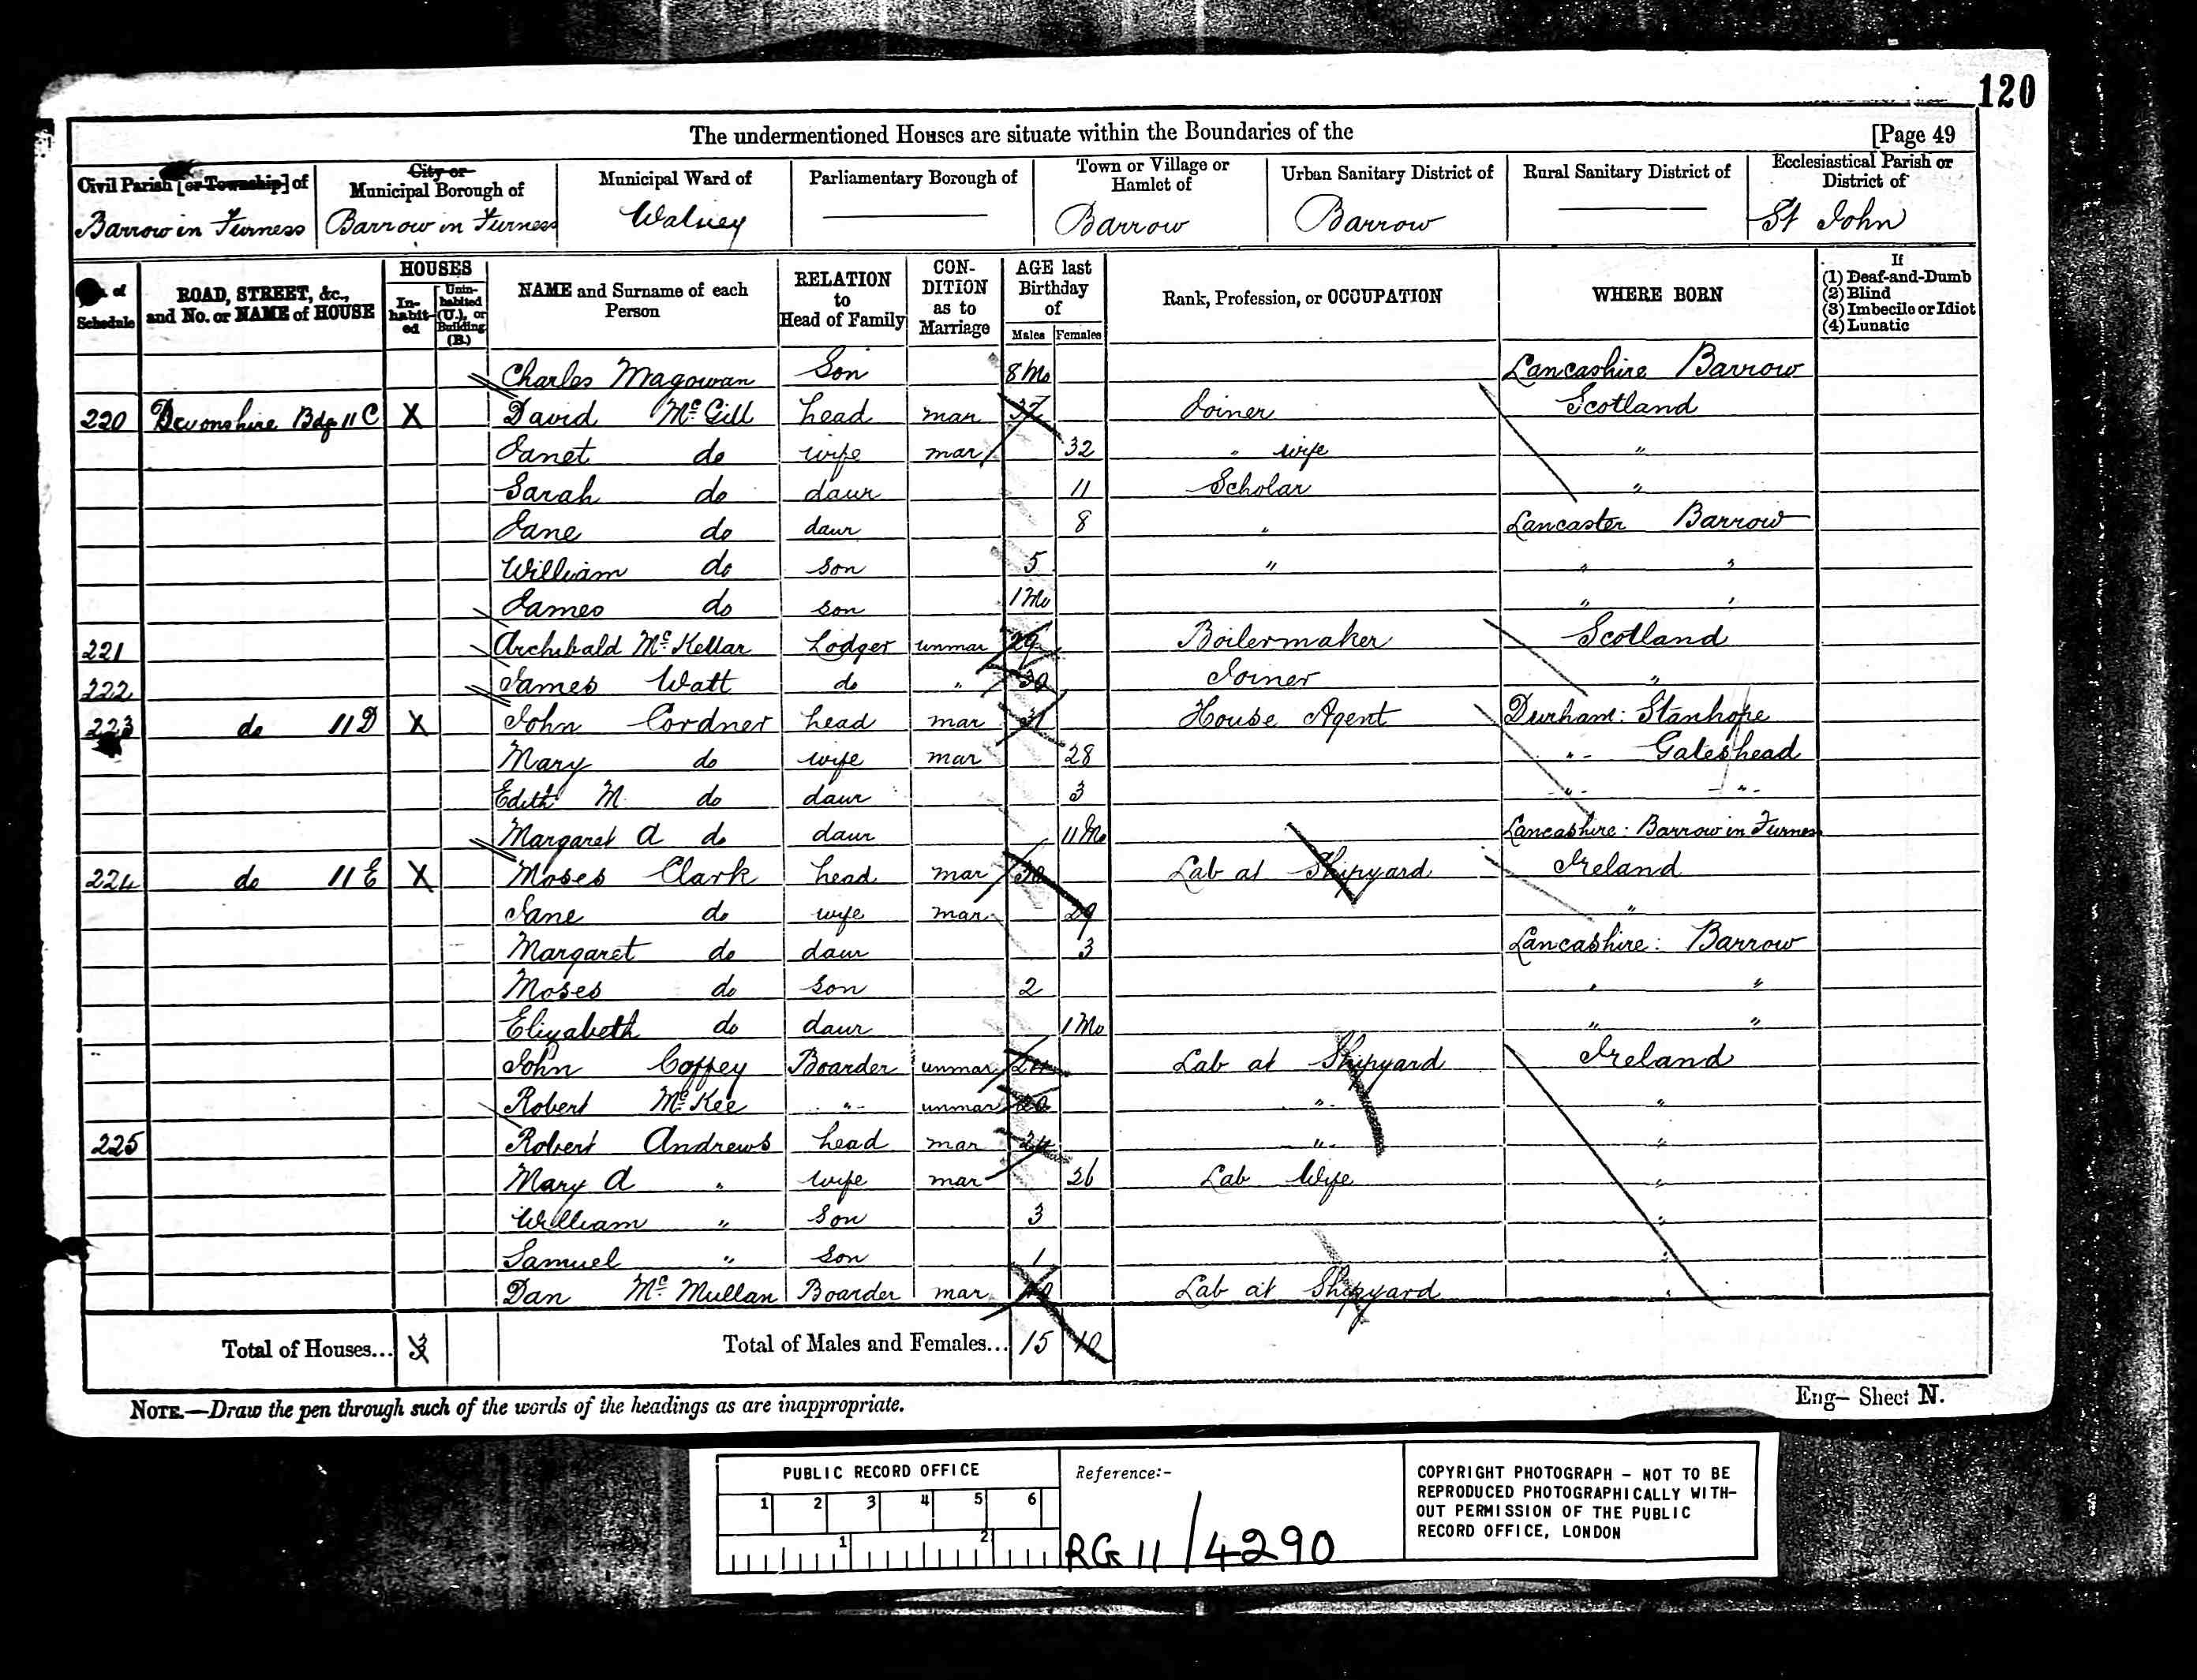 120
The undermentioned Houses are situate within the Boundaries of the [Page 49
Civil Parish [or Township] of
City or Municipal Borough of
Municipal Ward of
Parliamentary Borough of
Town or Village or Hamlet of
Urban Sanitary District of
Rural Sanitary District of
Ecclesiastical Parish or District of
Barrow in Furness Barrow in Furness Walney Barrow Barrow St John
of Schedule
ROAD, STREET, &c., and No. or NAME of HOUSE
HOUSES
In-habit-ed
Unin-habited (U.), or Building (B.)
NAME and Surname of each Person
RELATION to Head of Family
CON-DITION as to Marriage
AGE last Birthday of
Males Females
Rank, Profession, or OCCUPATION
WHERE BORN
If
(1) Deaf-and-Dumb
(2) Blind
(3) Imbecile or Idiot
(4) Lunatic
Charles Magowan Son 8 Mo Lancashire Barrow
220 Devonshire Bdg 11 C X David McGill head mar 37 Joiner Scotland
Janet do wife mar 32 " wife "
Sarah do daur 11 Scholar "
Jane do daur 8 " Lancaster Barrow
William do son 5 " " "
James do son 1 Mo " "
221 Archibald McKellar Lodger unmar 29 Boilermaker Scotland
222 James Watt do " 30 Joiner "
223 do 11 D X John Cordner head mar 31 House Agent Durham: Stanhope
Mary do wife mar 28 " Gateshead
Edith M do daur 3 " "
Margaret A do daur 11 Mo Lancashire: Barrow in Furness
224 do 11 E X Moses Clark head mar 30 Lab at Shipyard Ireland
Jane do wife mar 29 "
Margaret do daur 3 Lancashire: Barrow
Moses do son 2 " "
Elizabeth do daur 1 Mo " "
John Coffey Boarder unmar Lab at Shipyard Ireland
Robert McKee " unmar 20 " "
225 Robert Andrews head mar 24 " "
Mary A " wife mar 26 Lab Wife "
William " Son 3 "
Samuel " Son 1 "
Dan McMullan Boarder mar Lab at Shipyard "
Total of Houses... 3 Total of Males and Females... 15 10
NOTE.—Draw the pen through such of the words of the headings as are inappropriate.
Eng— Sheet N.
PUBLIC RECORD OFFICE
1 2 3 4 5 6
1 2
Reference:-
RG 11/4290
COPYRIGHT PHOTOGRAPH – NOT TO BE
REPRODUCED PHOTOGRAPHICALLY WITH-
OUT PERMISSION OF THE PUBLIC
RECORD OFFICE, LONDON